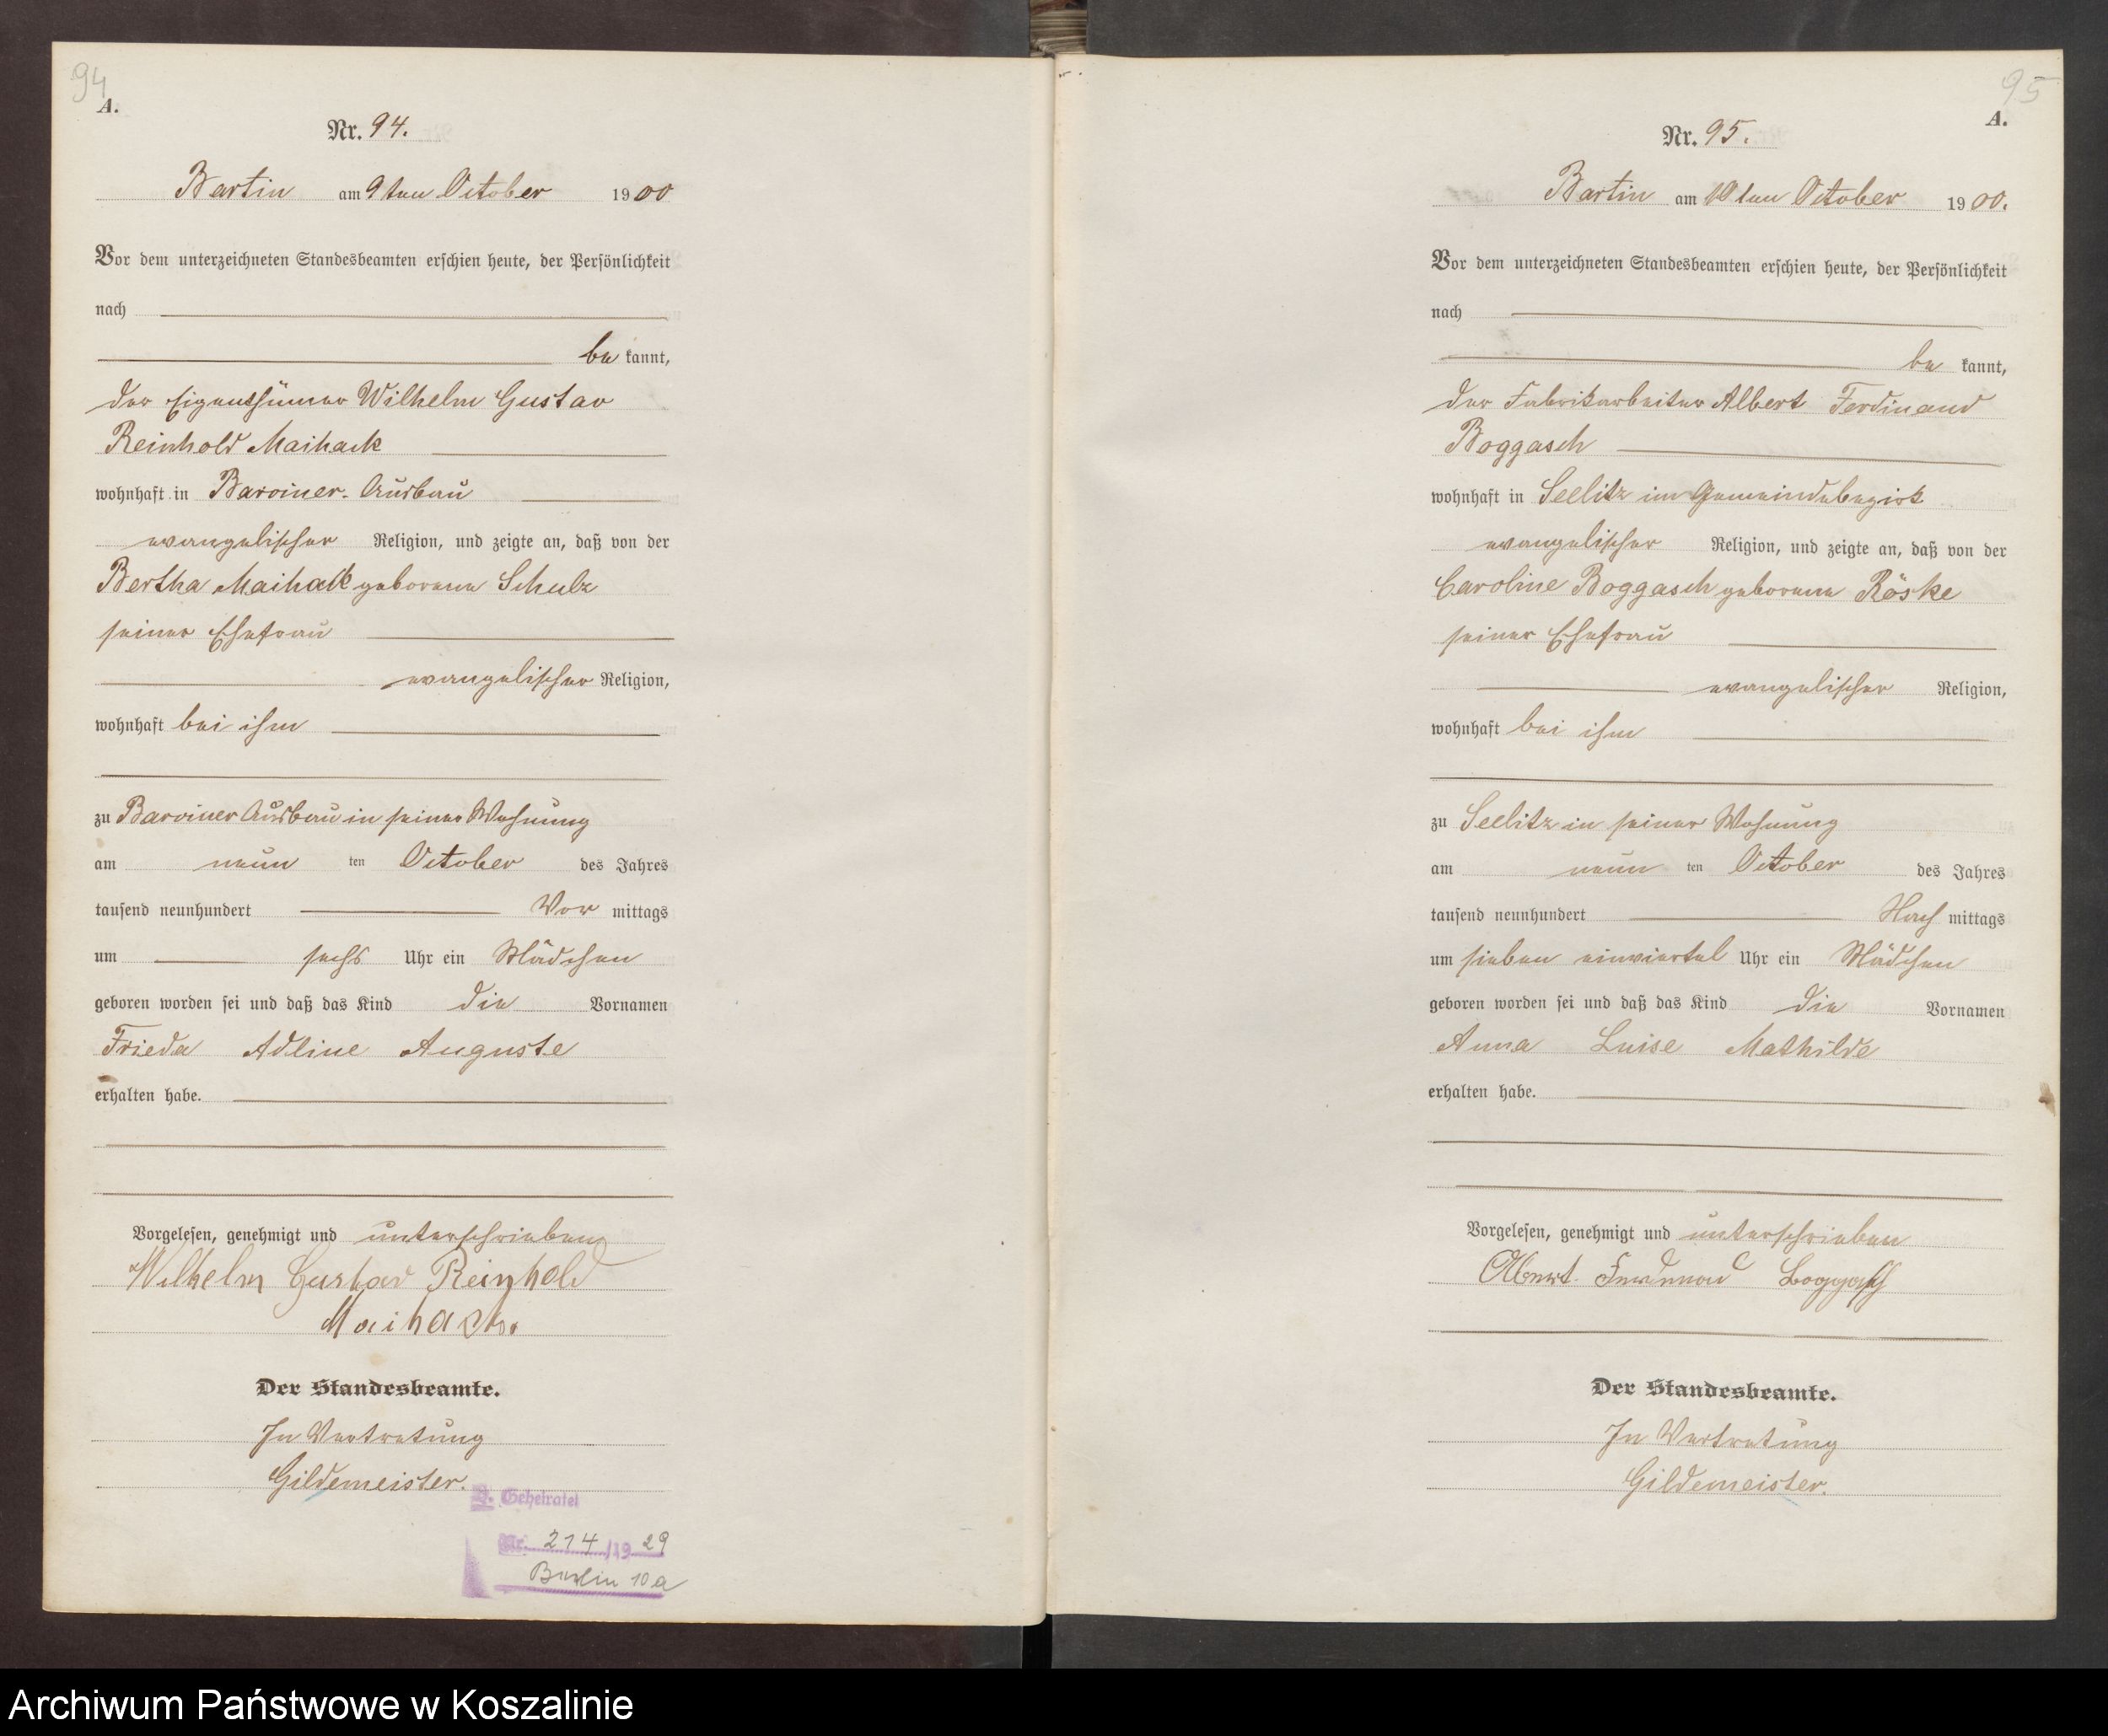 94
A.
Nr. 94.
Bartin am 9ten October 1900
Vor dem unterzeichneten Standesbeamten erschien heute, der Persönlichkeit
nach
bekannt,
der Eigenthümer Wilhelm Gustav
Reinhold Maihack
wohnhaft in Barviner-Ausbau
evangelischer Religion, und zeigte an, daß von der
Bertha Maihack geborene Schulz
seiner Ehefrau
evangelischer Religion,
wohnhaft bei ihm
zu Barviner Ausbau in seiner Wohnung
am neun ten October des Jahres
tausend neunhundert Vor mittags
um sechs Uhr ein Mädchen
geboren worden sei und daß das Kind die Vornamen
Frieda Adline Auguste
erhalten habe.
Vorgelesen, genehmigt und unterschrieben
Wilhelm Gustav Reinhold
Maihack.
Der Standesbeamte.
In Vertretung
Gildemeister.
Geheiratet
Nr. 214/1929
Berlin 10a
95
A.
Nr. 95.
Bartin am 10ten October 1900.
Vor dem unterzeichneten Standesbeamten erschien heute, der Persönlichkeit
nach
bekannt,
der Fabrikarbeiter Albert Ferdinand
Boggasch
wohnhaft in Seelitz im Gemeindebezirk
evangelischer Religion, und zeigte an, daß von der
Caroline Boggasch geborene Röske
seiner Ehefrau
evangelischer Religion,
wohnhaft bei ihm
zu Seelitz in seiner Wohnung
am neun ten October des Jahres
tausend neunhundert Nach mittags
um sieben einviertel Uhr ein Mädchen
geboren worden sei und daß das Kind die Vornamen
Anna Luise Mathilde
erhalten habe.
Vorgelesen, genehmigt und unterschrieben
Albert Ferdinand Boggasch
Der Standesbeamte.
In Vertretung
Gildemeister.
Archiwum Państwowe w Koszalinie